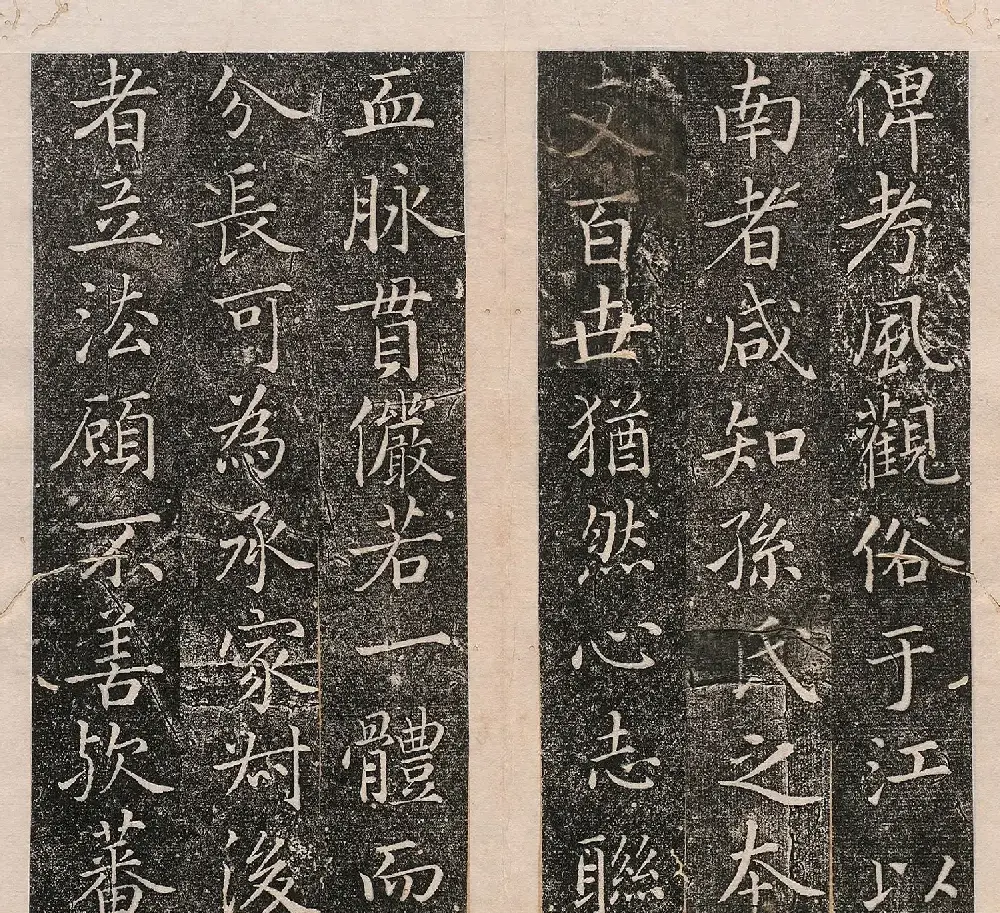 俾考風觀俗于江以
南者咸知孫氏之本
支百世猶然心志聯
血脉貫儼若一體而
分長可為承家後
者立法顧不善欤蕃